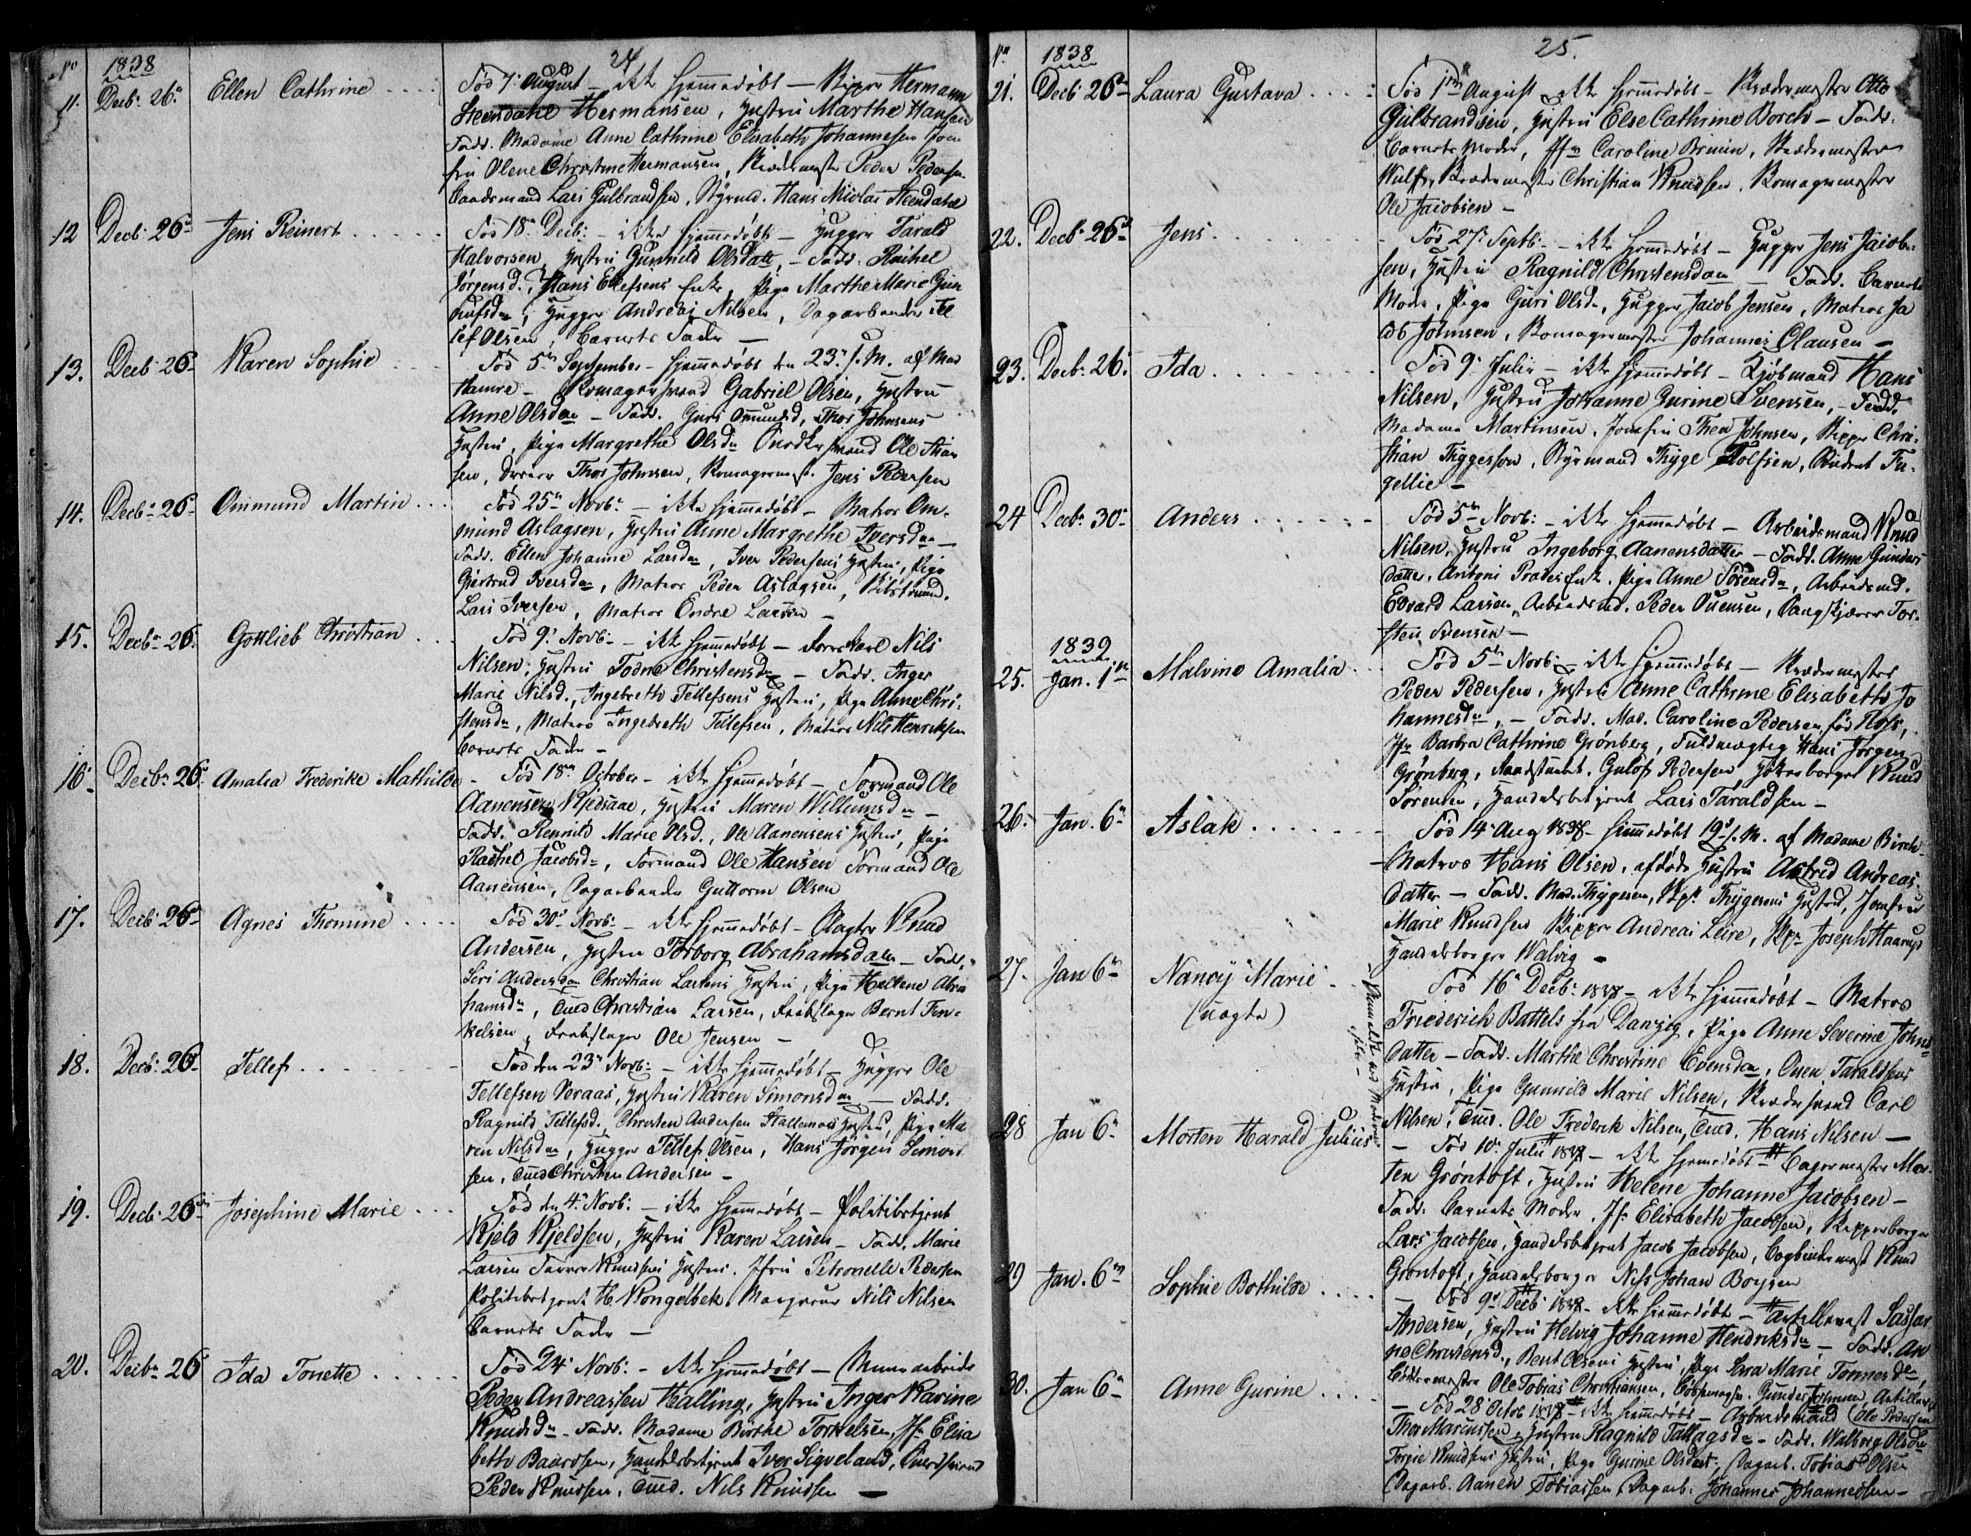 24
No 1838
11. Decb: 26n Ellen Cathrine
Fød 7. August – ikke hjemmedøbt – Skipper Hermann
Steensdahl Hermansen, Hustru Marthe Hansen
Fadd. Madame Anne Cathrine Elisabeth Johannesen Jom
fru Olene Christine Hermansen, Skrædermester Peder Pedersen
Lars Gulbrandsen, Styrmd. Hans Nicolai Steendahl
12 Decb: 26n Jens Reinert
Fød 18. Decb: – ikke hjemmedøbt – Hugger Tarald
Halvorsen, Hustru Gunnild Olsdatt – Fadd. Rachel
Jørgensd., Hans Ellefsens Enke, Pige Marthe Marie Gun
Hugger Andreas Nilsen, Dagarbeider El
lef Olsen, Barnets Fader –
13. Decb 26 Karen Sophie
Fød 5n September – hjemmedøbt den 23n s. M. af Mad
Hamre – Skomagersvend Gabriel Olsen, Hustru
Anne Olsdn – Fadd. Guri Omundsd, Thor Johnsens
Hustru, Pige Margrethe Olsdn Snedkersvend Ole Han
sen, Thor Johnsen, Skomagermest. Jens Pedersen
14. Decbr 26 Ommund Martin
Fød 25n Novbr – ikke hjemmedøbt – Matros Om-
mund Aslagsen, Hustru Anne Margrethe Iversdn –
Fadd. Ellen Johanne Larsdn, Iver Pedersens Hustru, Pige
Gjertrud Iversdn, Matros Peder Aslagsen,
Lars Iversen, Matros Endre Larsen –
15. Decbr 26. Gottlieb Christian
Fød 9. Novbr – ikke hjemmedøbt – Nils
Nilsen, Hustru Todne Christensdn – Fadd. Inger
Marie Nilsd., Ingebreth Tellefsens Hustru, Pige Anne Chri-
stensdn, Matros Ingebreth Tellefsen, Matros Nils Henriksen
Barnets Fader –
16. Decbr 26 Amalia Frederike Mathilde
Fød 18n October – ikke hjemmedøbt – Formand Ole
Aanensen Kjedsaae, Hustru Maren Willumsdn –
Fadd. Rennild Marie Olsd., Ole Aanensens Hustru, Pige
Rachel Jacobsdn, Formand Ole Hansen Formand Ole
Aanensen, Dagarbeider Guttorm Olsen
17. Decb 26 Agnes Thomine
Fød 30. Novbr – ikke hjemmedøbt – Slagter Knud
Andersen, Hustru Torborg Abrahamsdatn – Fadd.
Siri Andersdn Christian Larsens Hustru, Pige Hellene Abra
hamsdn, Christian Larsen, Bernt Ten-
kelsen, Ole Jensen –
18. Decb: 26 Tellef
Fød den 23n Novb: – ikke hjemmedøbt – Hugger Ole
Tellefsen Veraas, Hustru Karen Simonsdn – Fadd.
Ragnild Tellefsd, Christen Andersen Hallemoes Hustru, Pige Ma
ren Nilsdn, Hugger Tellef Olsen, Hans Jørgen Simon
sen, Christen Andersen –
19. Decb: 26 Josephine Marie
Fød den 4. Novb: – ikke hjemmedøbt – Politibetjent
Kjeld Kjeldsen, Hustru Karen Larsen – Fadd. Marie
Larsen Knudsens Hustru. Jfru Petronelle Pedersen
Politibetjent H. Kongelbek, Nils Nilsen
Barnets Fader –
20. Decbr 26 Ida Tonette
Fød 24. Novb: – ikke hjemmedøbt –
Peder Andreassen Halling, Hustru Inger Karine
Knudsdn – Fadd. Madame Birthe Torkelsen, Jfr Elisa
beth Baardsen, Handelsbetjent Iver Sigveland,
Peder Knudsen, Nils Knudsen –
25.
No 1838
21. Decb 26n Laura Gustava
Fød 1n August ikke hjemmedøbt – Skrædermester Otto
Gulbrandsen, Hustru Else Cathrine Borch – Fadd.
Barnets Moder, Jfr Caroline Bruun, Skrædermester
Wulf, Skrædermester Christian Knudsen, Skomagermester
Ole Jacobsen –
22. Decbr 26n Jens
Fød 27. Septb – ikke hjemmedøbt – Hugger Jens Jacob-
sen, Hustru Ragnild Christensdatn – Fadd. Barnets
Moder, Pige Guri Olsd., Hugger Jacob Jensen, Matros Ja
cob Johnsen, Skomagermester Johannes Clausen –
23. Decbr 26. Ida
Fød 9. Julii – ikke hjemmedøbt – Kjøbmand Hans
Nilsen, Hustru Johanne Gurine Svensen, – Fadd.
Madame Martinsen, Jomfru Thea Johnsen, Skipper Chri-
stian Thygesson, Styrmand Thyge Tolfsen, Student Fu-
gellie –
24 Decbr 30 Anders
Fød 5n Novb: – ikke hjemmedøbt – Arbeidsmand Knud
Nilsen, Hustru Ingeborg Aanensdatter – Fadd. Anne Gunders
datter, Antoni Enke, Pige Anne Sørensdn, Arbeidsmd.
Edvard Larsen, Arbeidsmd. Peder Svensen, Tor-
sten Svensen –
1839
25. Jan. 1n Malvine Amalia
Fød 5n Novb: – ikke hjemmedøbt – Skrædermester
Peder Pedersen, Hustru Anne Cathrine Elisabeth Jo
hannesdn, – Fadd. Mad. Caroline Pedersen, fød
Jfr Barbra Cathrine Grønberg, Fuldmægtig Hans Jørgen
Grønberg, Pedersen Knud
Sørensen, Handelsbetjent Lars Taraldsen –
26. Jan. 6n Aslak
Fød 14. Aug 1838 – hjemmedøbt 19. s. M. af Madame Birch
– Matros Hans Olsen, afdøde Hustru Astrid Andreas-
datter – Fadd. Mad. Thygesen, Skpr Thygesens Hustru, Jomfru
Marie Knudsen Skipper Andreas Leire, Skpr Joseph Haarup
Handelsborger Walvig –
27. Jan 6n Nancy Marie
(uægte)
Fød 16n Decb: 1838 – ikke hjemmedøbt – Matros
Friederich Battels fra Danzig, Pige Anne Severine Johns
datter – Fadd. Marthe Christine Evensdn, Ouen Taraldsens
Hustru, Pige Gunnild Marie Nilsen, Skrædersvend Carl
Nilsen, Ole Frederik Nilsen, Hans Nilsen –
28 Jan 6n Morten Harald Julius
– Fød 10. Julii 1838 – ikke hjemmedøbt – Bagermester Mor-
ten Grøntoft, Hustru Helene Johanne Jacobsen –
Fadd. Barnets Moder, Jfr Elisabeth Jacobsen, Skipperborger
Lars Jacobsen, Handelsbetjent Jacob Jacobsen, Bogbindermest Knud
Grøntoft, Handelsborger Nils Johan Boysen
29 Jan. 6n Sophie Bothilde
– Fød 9. Decb 1838 – ikke hjemmedøbt –
Andersen, Hustru Helvig Johanne Hendriksdn – Fadd. An
ne Christensd., Bent Olsens Hustru, Pige Sara Marie Tønnesdn,
Ole Tobias Christiansen, Gunder Johnsen
30. Jan 6n Anne Gurine
– Fød 28 Octob 1838 – ikke hjemmedøbt – Arbeidsmand (Ole Pedersen
Thor Marcussen, Hustru Ragnild Tallagsdn – Fadd. Walbrog Olsdn
Torjer Knudsens Hustru, Pige Gurine Olsdatr, Dagarb. Tobias Olsen
Dagarb. Aanen Tobiassen, Dagarb: Johannes Johannessen –